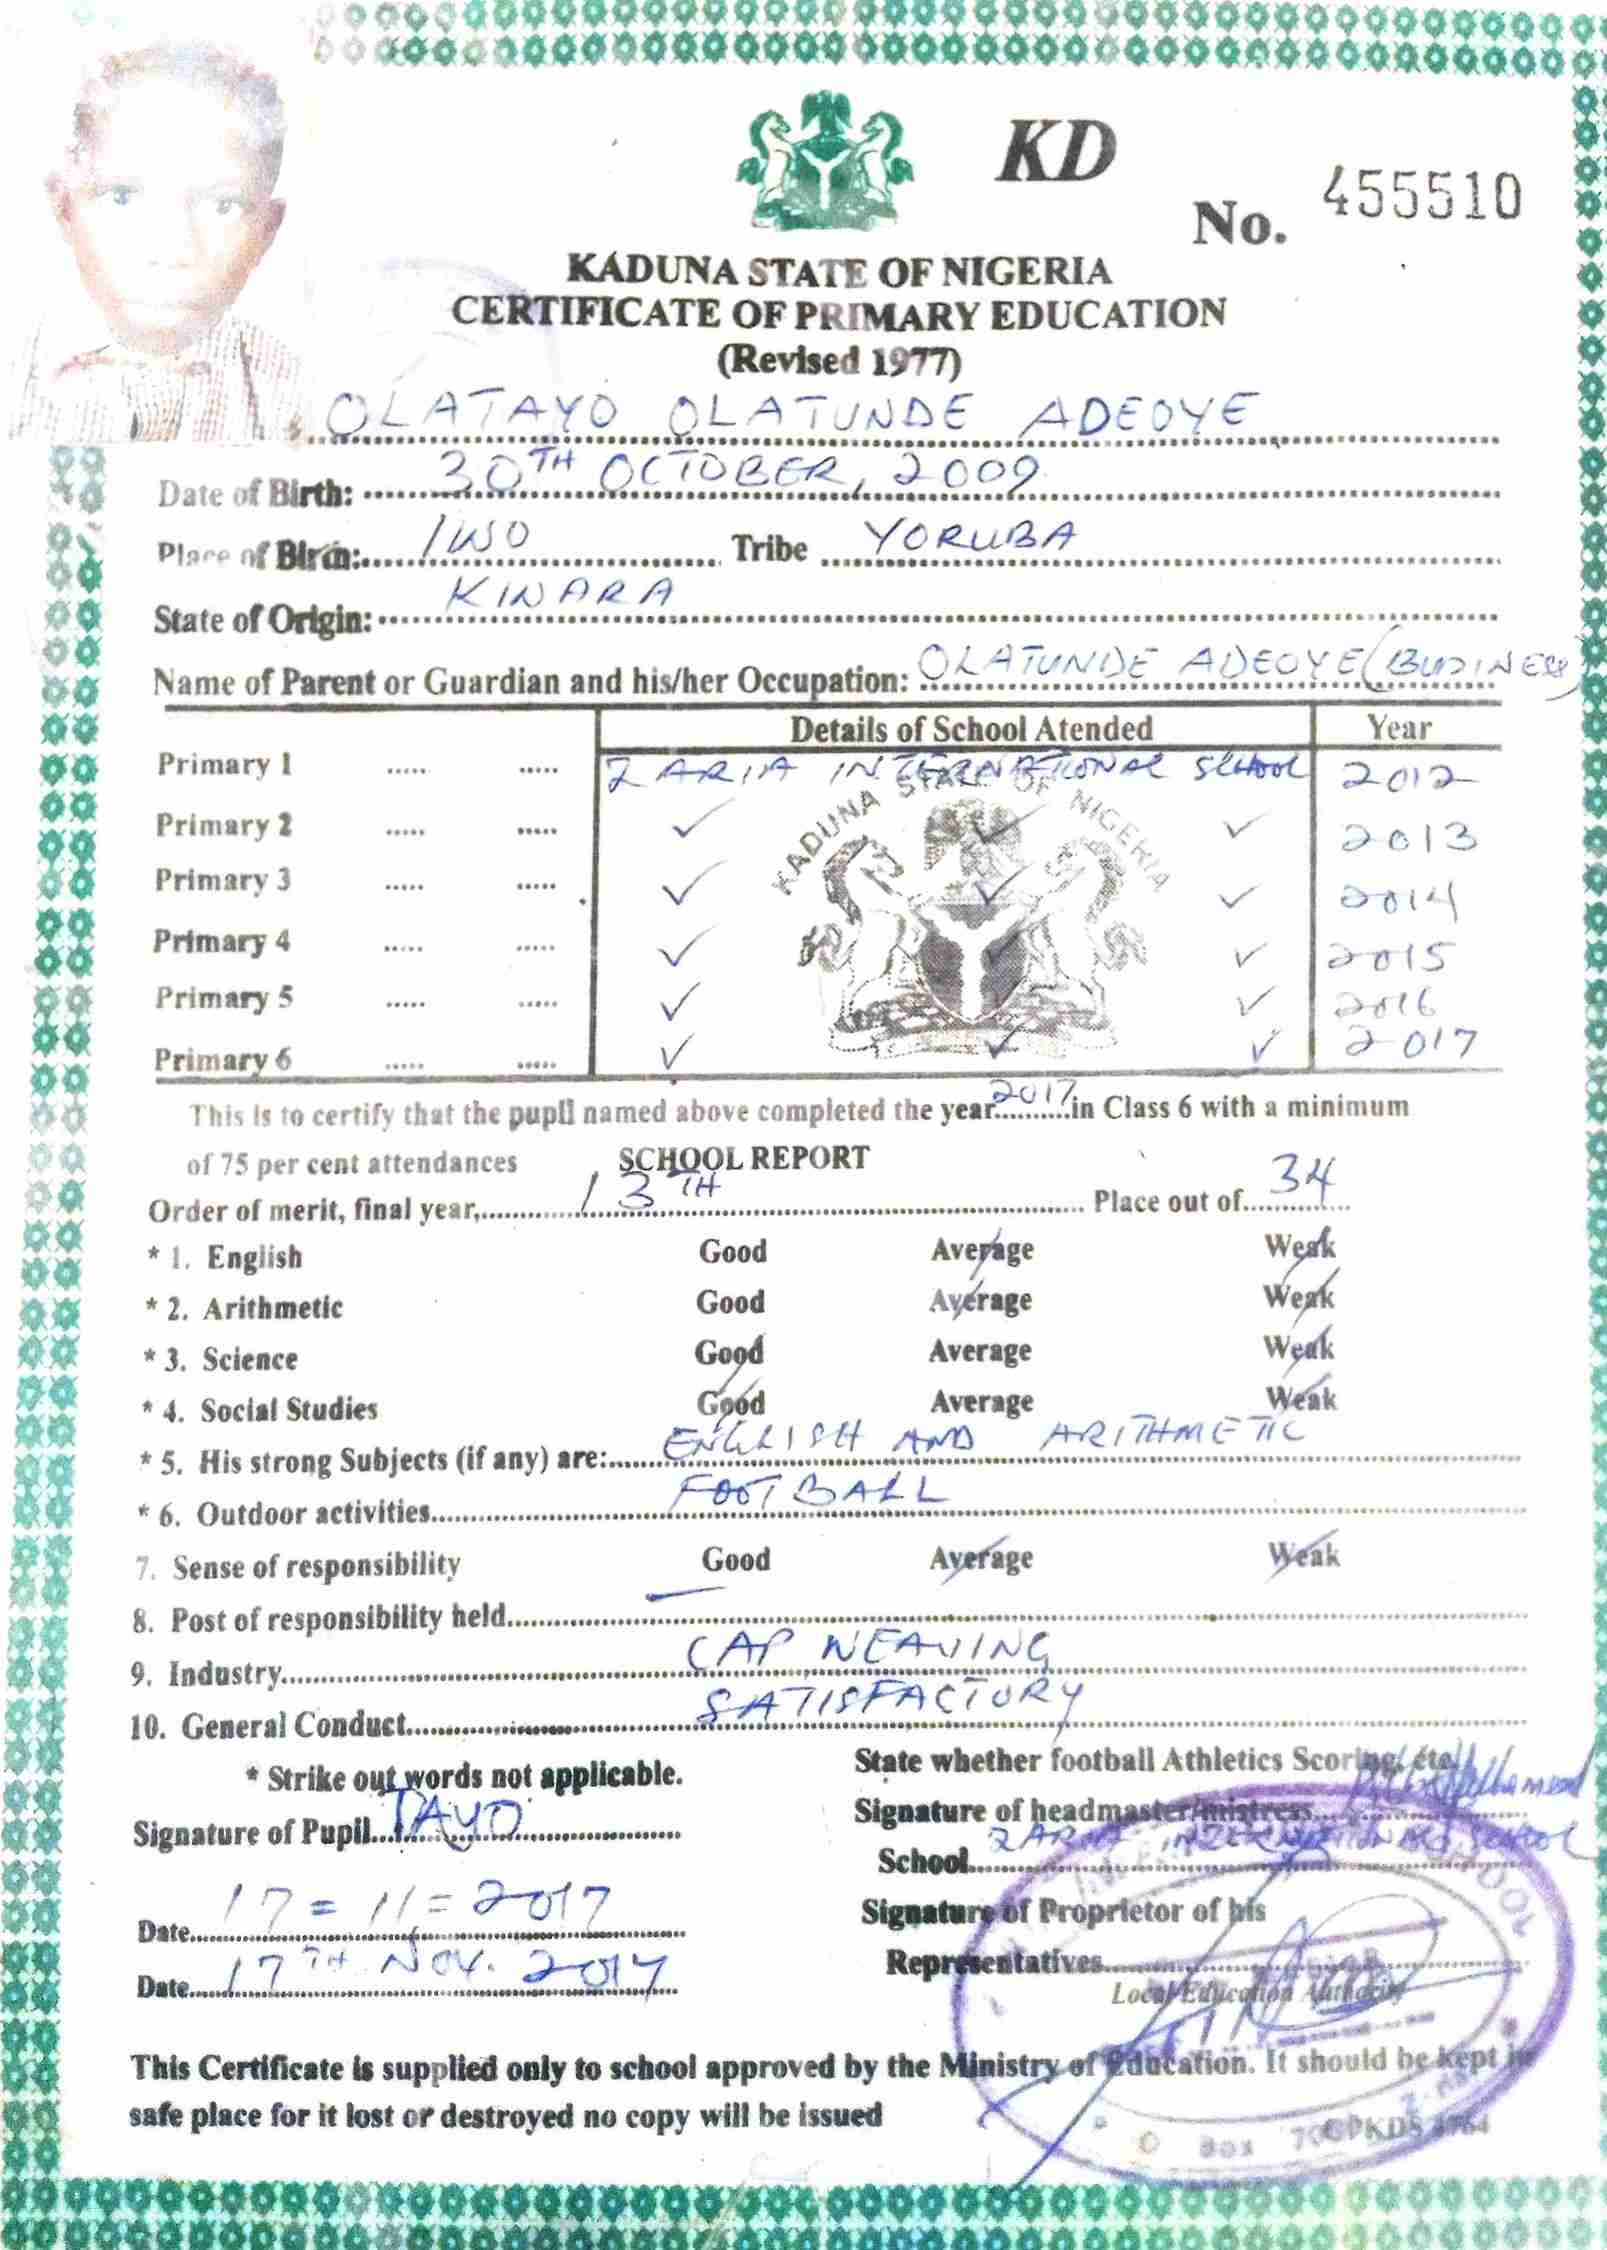 KD
No. 455510
KADUNA STATE OF NIGERIA
CERTIFICATE OF PRIMARY EDUCATION
(Revised 1977)
OLATAYO OLATUNDE ADEOYE
Date of Birth: 30TH OCTOBER, 2009
Place of Birth: IWO Tribe YORUBA
State of Origin: KINARA
Name of Parent or Guardian and his/her Occupation: OLATUNDE ADEOYE (BUSINESS)
Details of School Atended Year
Primary 1 ..... ..... ZARIA INTERNATIONAL SCHOOL 2012
KADUNA STATE OF NIGERIA
Primary 2 ..... ..... ✓ ✓ ✓ 2013
Primary 3 ..... ..... ✓ ✓ ✓ 2014
Primary 4 ..... ..... ✓ ✓ ✓ 2015
Primary 5 ..... ..... ✓ ✓ 2016
Primary 6 ..... ..... ✓ ✓ ✓ 2017
This is to certify that the pupil named above completed the year 2017 in Class 6 with a minimum
of 75 per cent attendances SCHOOL REPORT
Order of merit, final year, 13TH Place out of 34
* 1. English Good Average Weak
* 2. Arithmetic Good Average Weak
* 3. Science Good Average Weak
* 4. Social Studies Good Average Weak
* 5. His strong Subjects (if any) are: ENGLISH AND ARITHMETIC
* 6. Outdoor activities FOOTBALL
7. Sense of responsibility Good Average Weak
8. Post of responsibility held —
9. Industry CAP WEAVING
10. General Conduct SATISFACTORY
* Strike out words not applicable.
State whether football Athletics Scoring, etc.
Signature of Pupil TAYO
Signature of headmaster/mistress
School ZARIA INTERNATIONAL SCHOOL
Date 17=11=2017
Signature of Proprietor of his
Representatives
Date 17TH NOV. 2017
Local Education Authority
This Certificate is supplied only to school approved by the Ministry of Education. It should be kept in
safe place for it lost or destroyed no copy will be issued
SCHOOL
O Box
GPKDS 4764